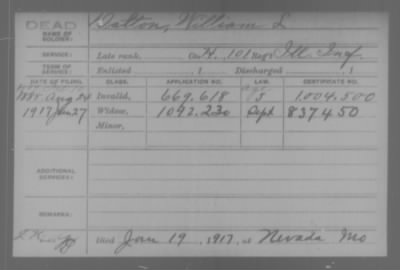 DEAD
NAME OF SOLDIER: Dalton, William L
SERVICE: Late rank, Co. H, 101 Reg't Ill Inf
TERM OF SERVICE: Enlisted , 1 Discharged , 1
DATE OF FILING. CLASS. APPLICATION NO. LAW. CERTIFICATE NO.
1888 Aug 24 Invalid, 669.618 1.004.500
1917 Jan 27 Widow, 1092.230 Sept 837450
Minor,
ADDITIONAL SERVICES:
REMARKS:
Died Jan 19, 1917, at Nevada Mo